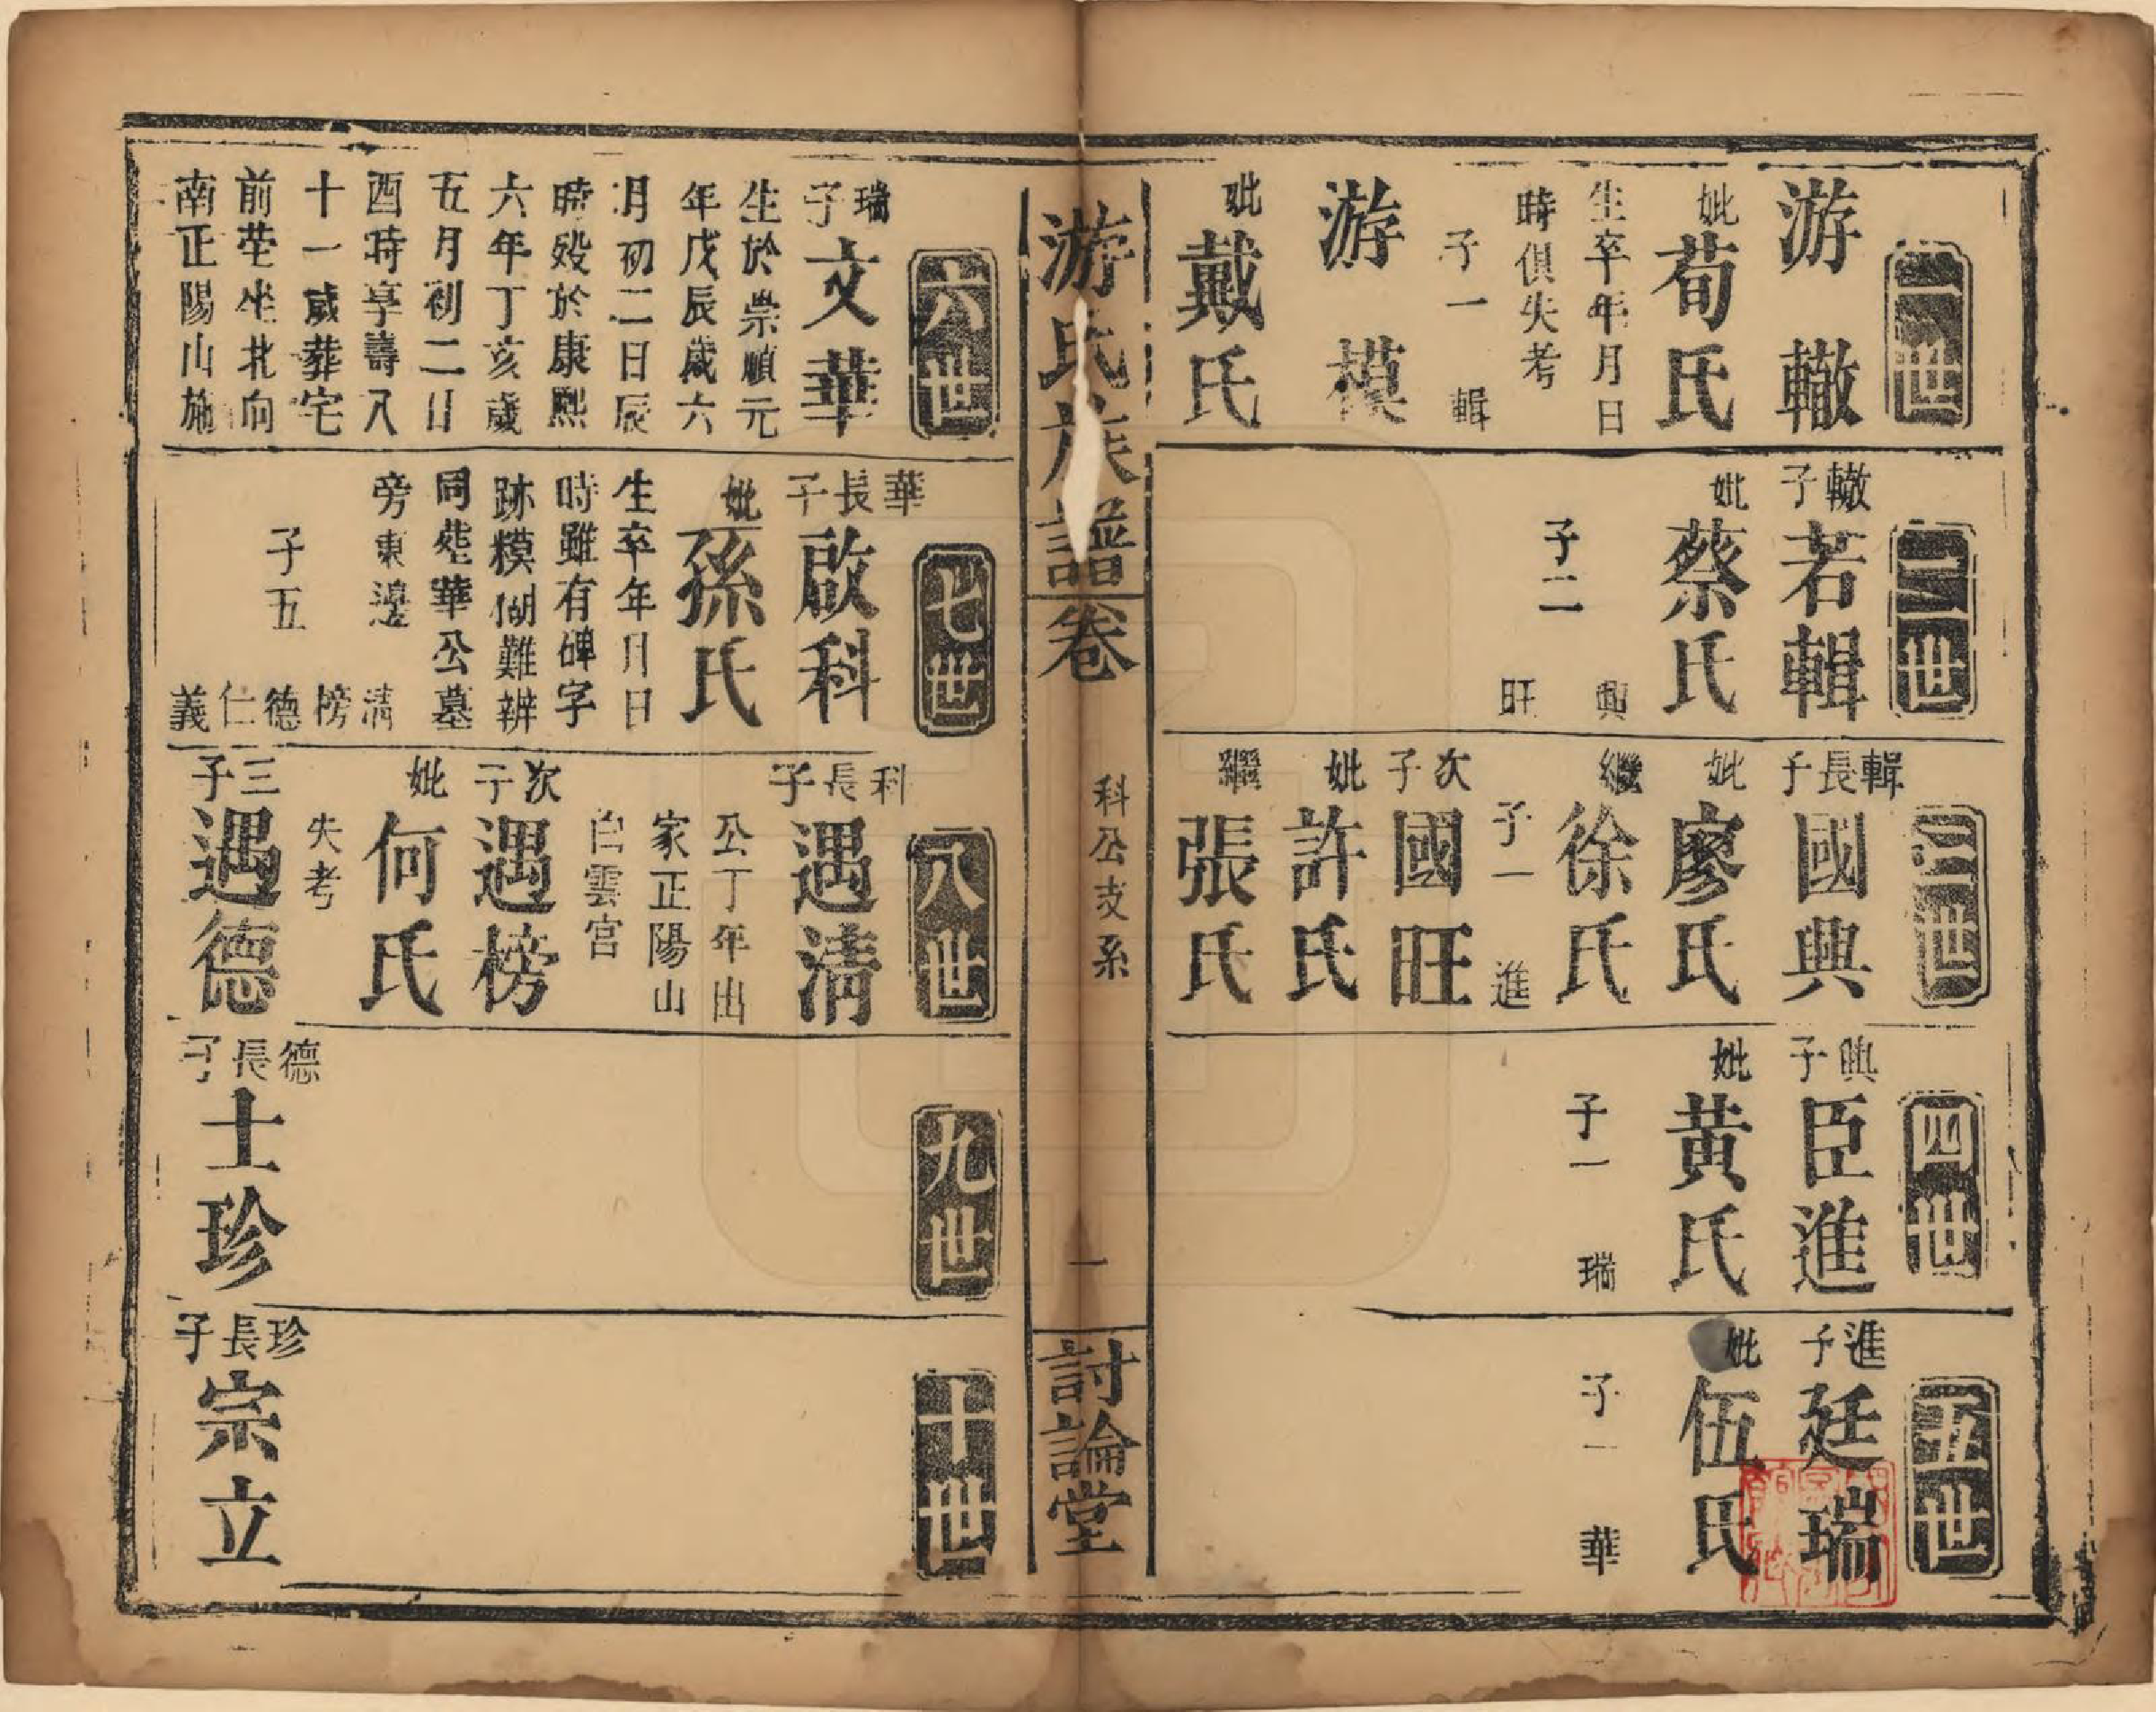 一世
游轍
妣荀氏
生卒年月日
時俱失考
子一 輯
游模
妣戴氏
二世
轍子若輯
妣蔡氏
子二 興
旺
三世
輯長子國興
妣廖氏
繼徐氏
子一 進
次子國旺
妣許氏
繼張氏
四世
興子臣進
妣黄氏
子一 瑞
五世
進子廷瑞
妣伍氏
子一 華
游氏族譜
卷
科公支系
一
討論堂
六世
瑞子文華
生於崇順元
年戊辰歲六
月初二日辰
時殁於康熙
六年丁亥歲
五月初二日
酉時享壽八
十一歲葬宅
前茔坐北向
南正陽山施
七世
華長子啟科
妣孫氏
生卒年月日
時雖有碑字
跡糢糊難辨
同塟華公墓
旁東邊
子五 清榜德仁義
八世
科長子遇清
公丁年出
家正陽山
白雲宫
次子遇榜
妣何氏
失考
三子遇德
九世
德長子士珍
十世
珍長子宗立